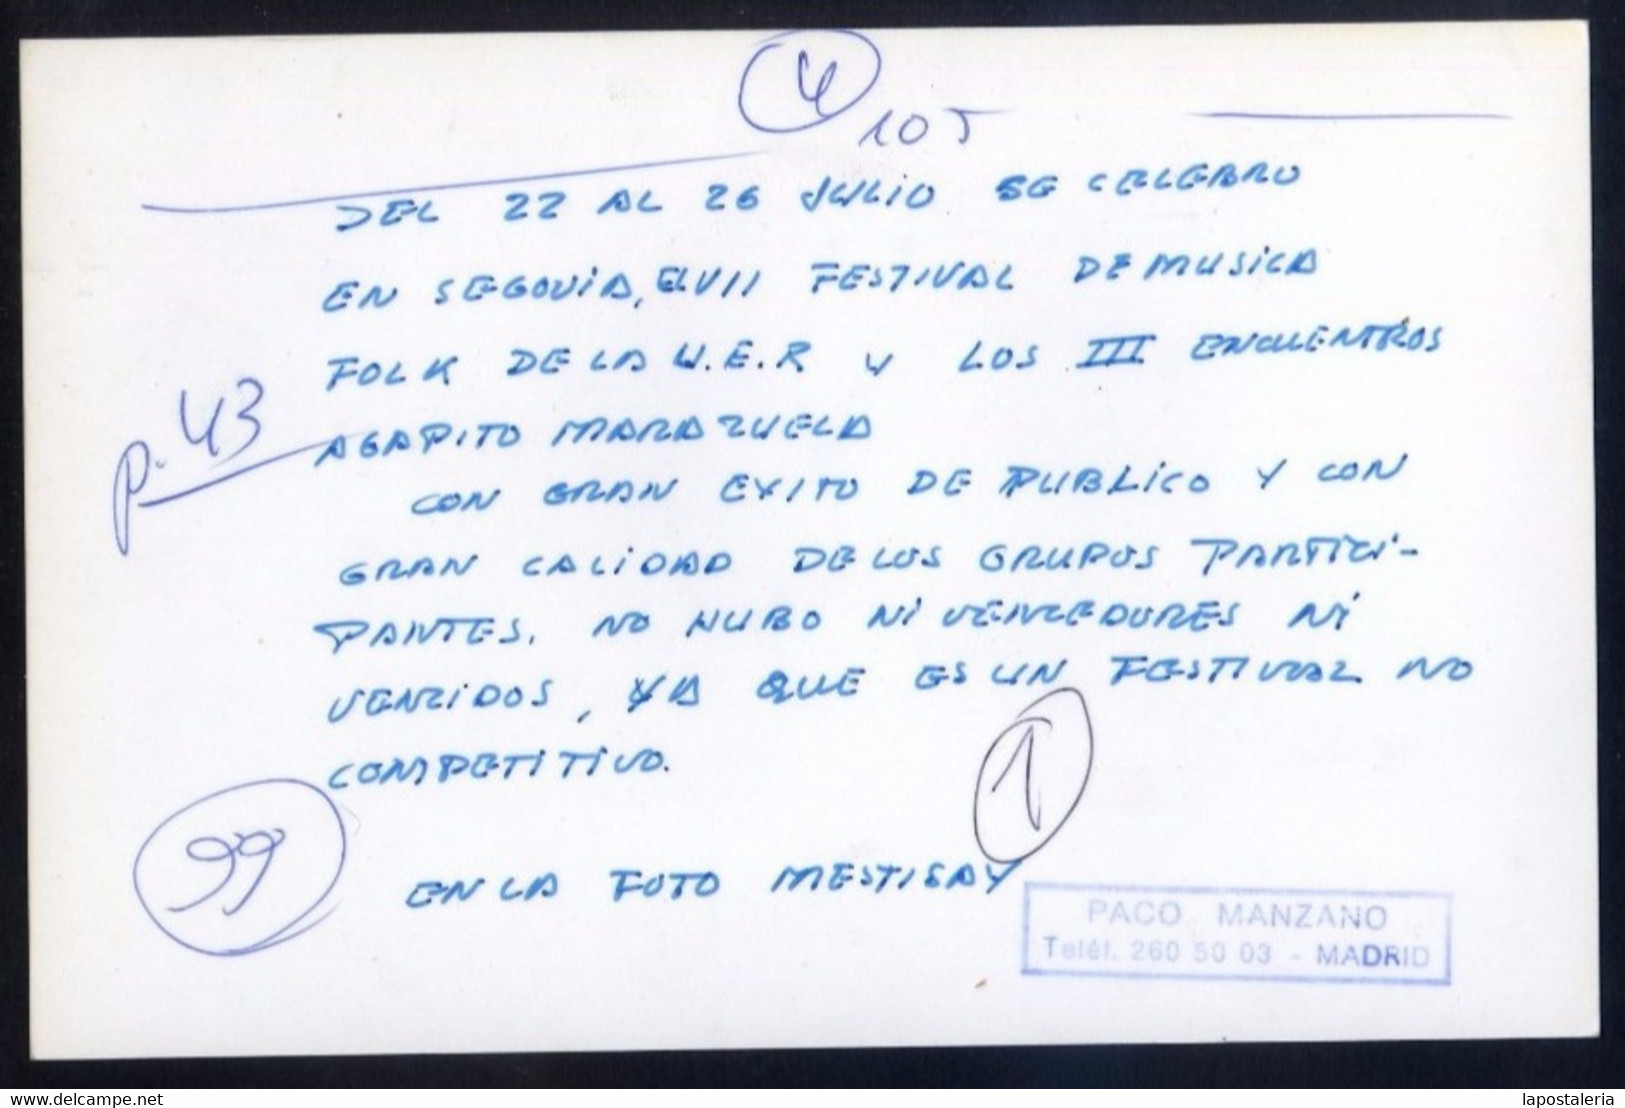 4
105
DEL 22 AL 26 JULIO SE CELEBRO
EN SEGOVIA, EL VII FESTIVAL DE MUSICA
FOLK DE LA U.E.R y LOS III ENCUENTROS
p. 43
AGAPITO MARAZUELA
CON GRAN EXITO DE PUBLICO Y CON
GRAN CALIDAD DE LOS GRUPOS PARTICI-
PANTES. NO HUBO NI VENCEDORES NI
VENCIDOS, YA QUE ES UN FESTIVAL NO
COMPETITIVO.
1
99
EN LA FOTO MESTISAY
PACO MANZANO
Teléf. 260 50 03 - MADRID
www.delcampe.net
lapostaleria